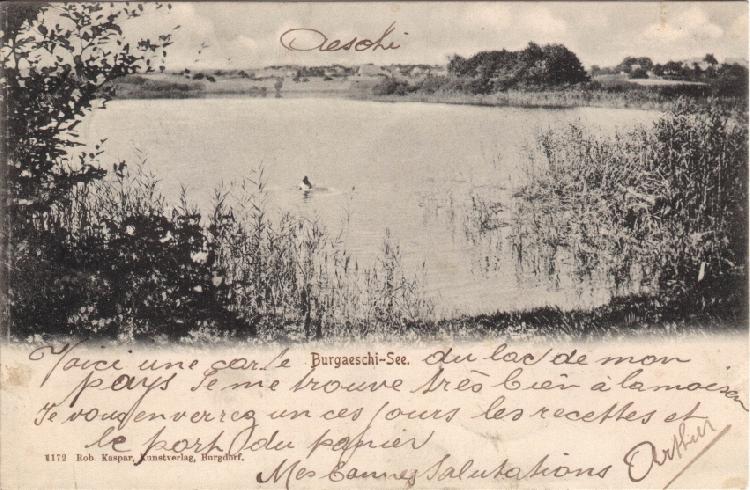 Aeschi
Voici une carte Burgaeschi-See. du lac de mon
pays Je me trouve très bien à la maison
Je vous enverrez un ces jours les recettes et
le port du panier
1172 Rob. Kaspar, Kunstverlag, Burgdorf.
Mes bonnes salutations Arthur